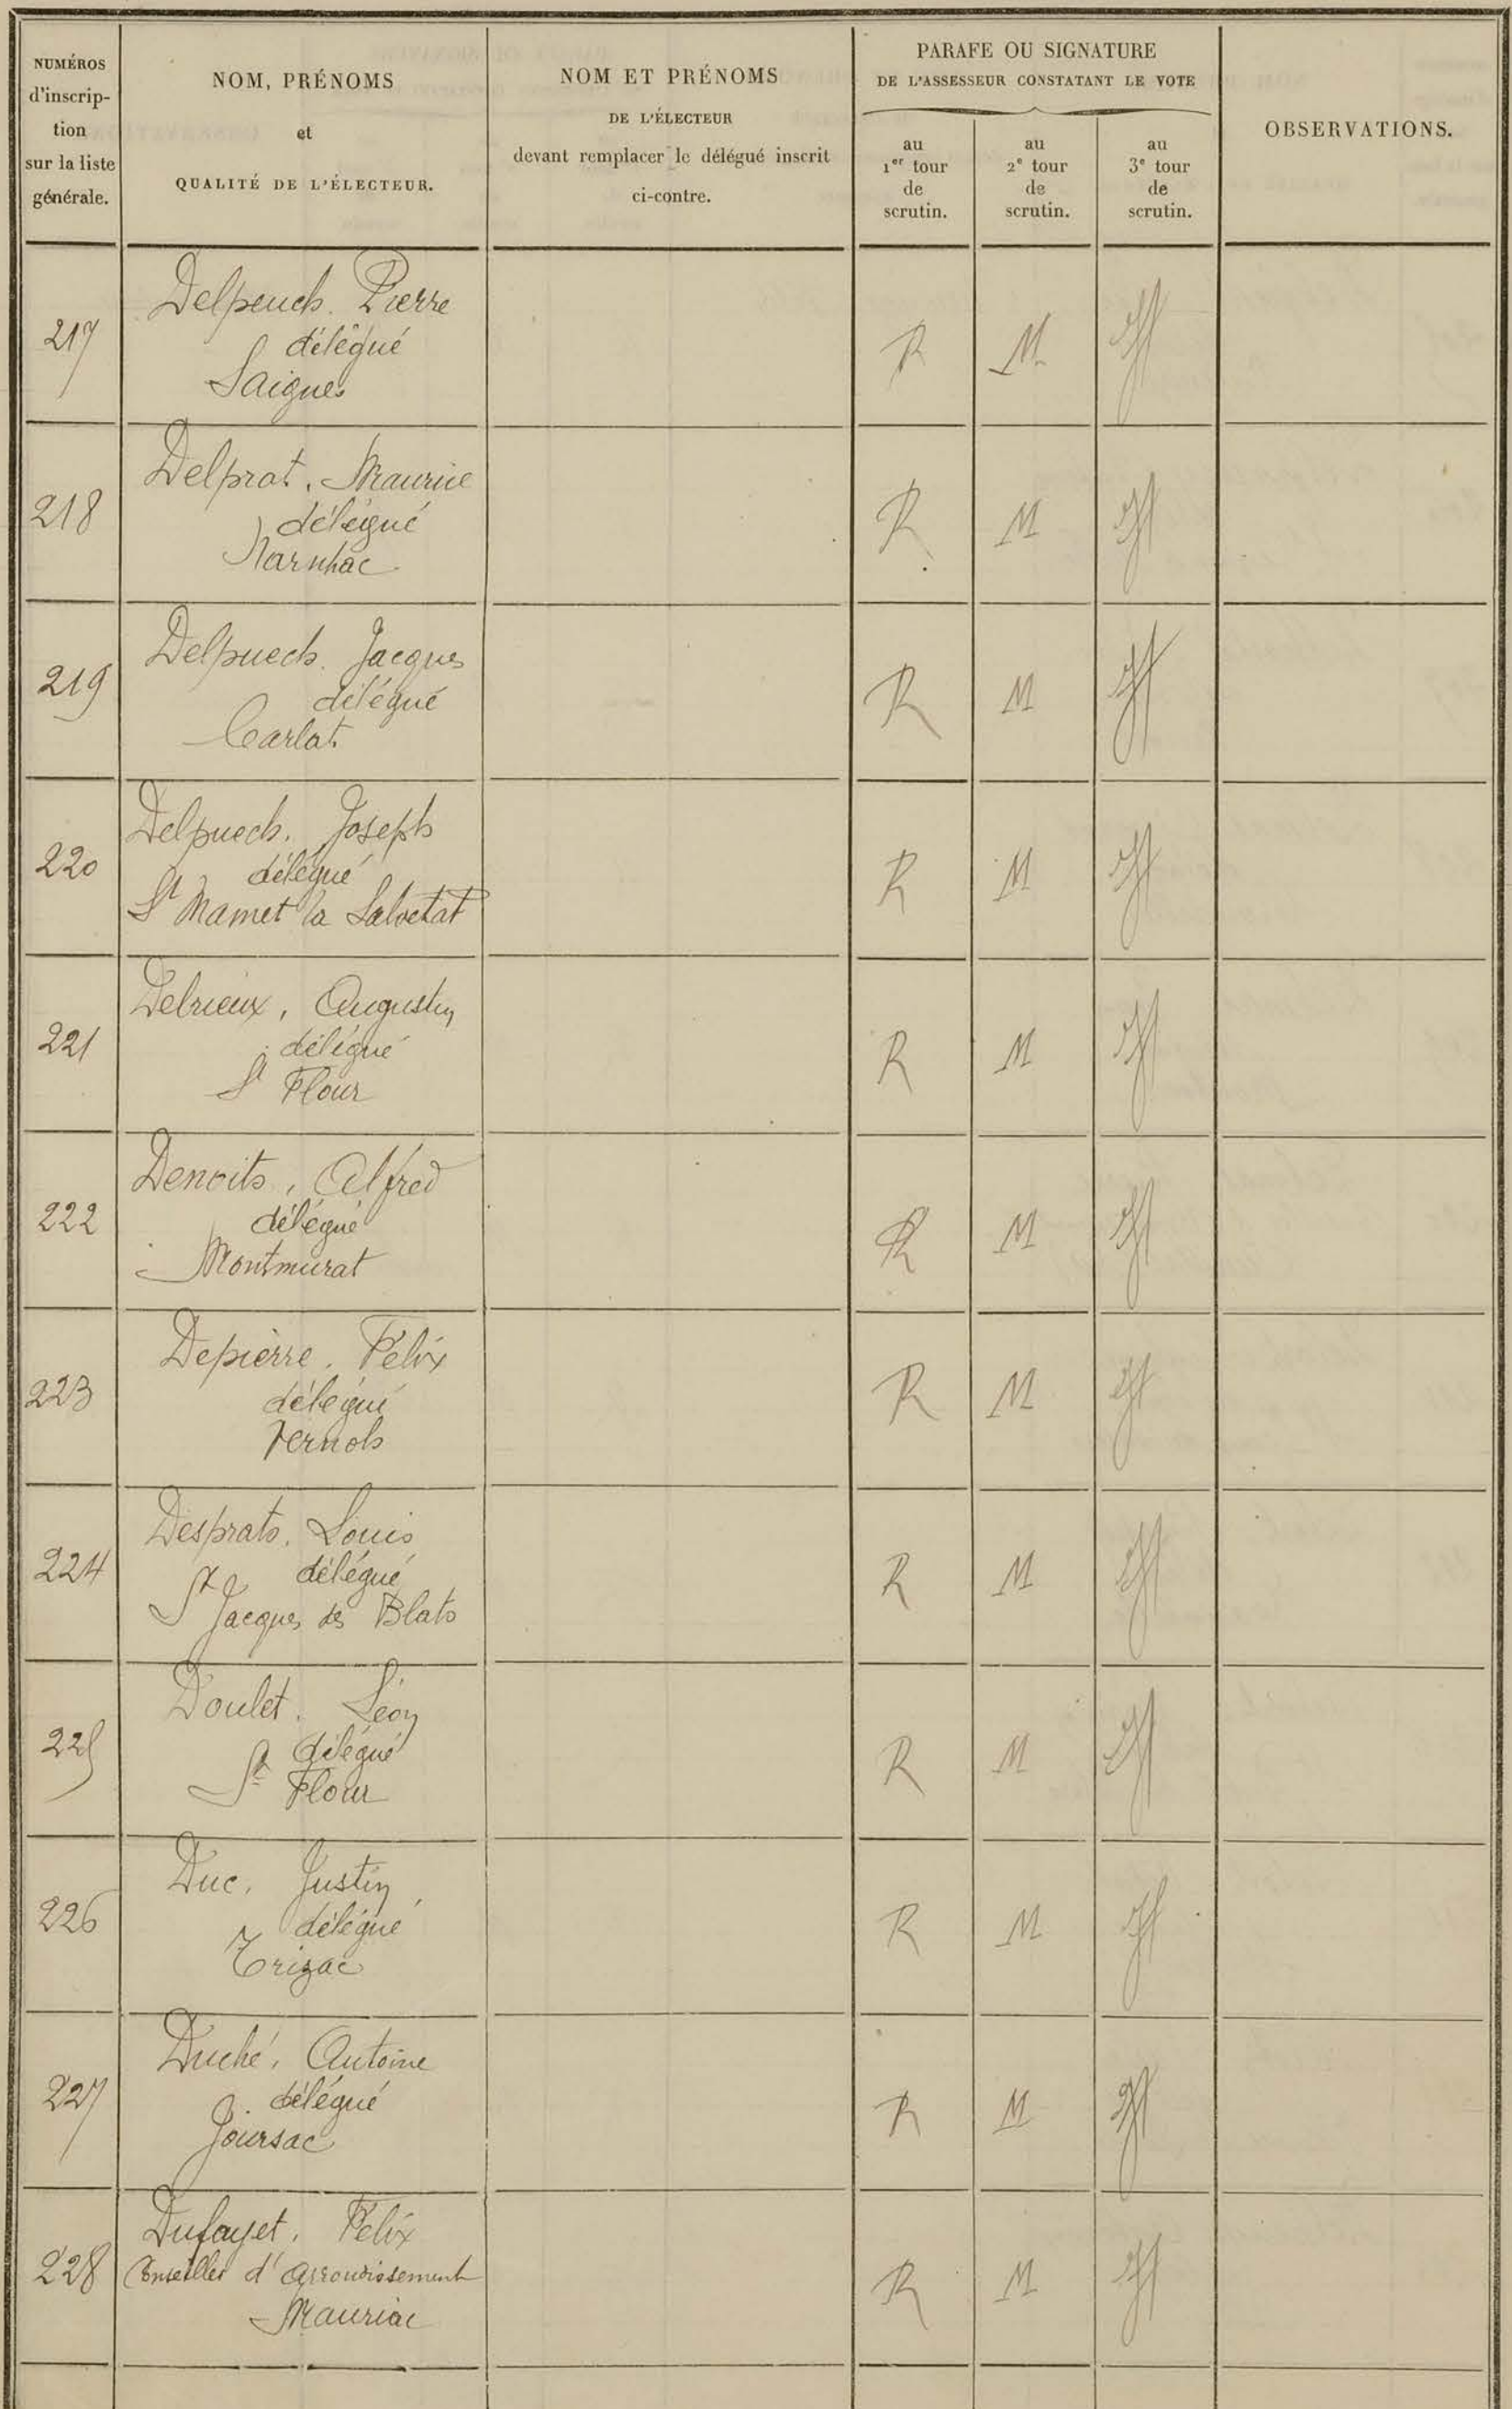 NUMÉROS
d'inscrip-
tion
sur la liste
générale.
NOM, PRÉNOMS
et
QUALITÉ DE L'ÉLECTEUR.
NOM ET PRÉNOMS
DE L'ÉLECTEUR
devant remplacer le délégué inscrit
ci-contre.
PARAFE OU SIGNATURE
DE L'ASSESSEUR CONSTATANT LE VOTE
au
1er tour
de
scrutin.
au
2e tour
de
scrutin.
au
3e tour
de
scrutin.
OBSERVATIONS.
217
Delpeuch. Pierre
délégué
Saignes
R M
218
Delprat. Maurice
délégué
Narnhac
R M
219
Delpuech. Jacques
délégué
Carlat.
R M
220
Delpuech. Joseph
délégué
St Mamet la Salvetat
R M
221
Delrieux, Augustin
délégué
St Flour
R M
222
Denoits, Alfred
délégué
Montmurat
R M
223
Depierre. Félix
délégué
Vernols
R M
224
Desprats. Louis
délégué
St Jacques des Blats
R M
225
Doulet. Léon
délégué
St Flour
R M
226
Duc, Justin
délégué
Trizac
R M
227
Duché, Antoine
délégué
Joursac
R M
228
Dufayet, Félix
Conseiller d'arrondissement
Mauriac
R M